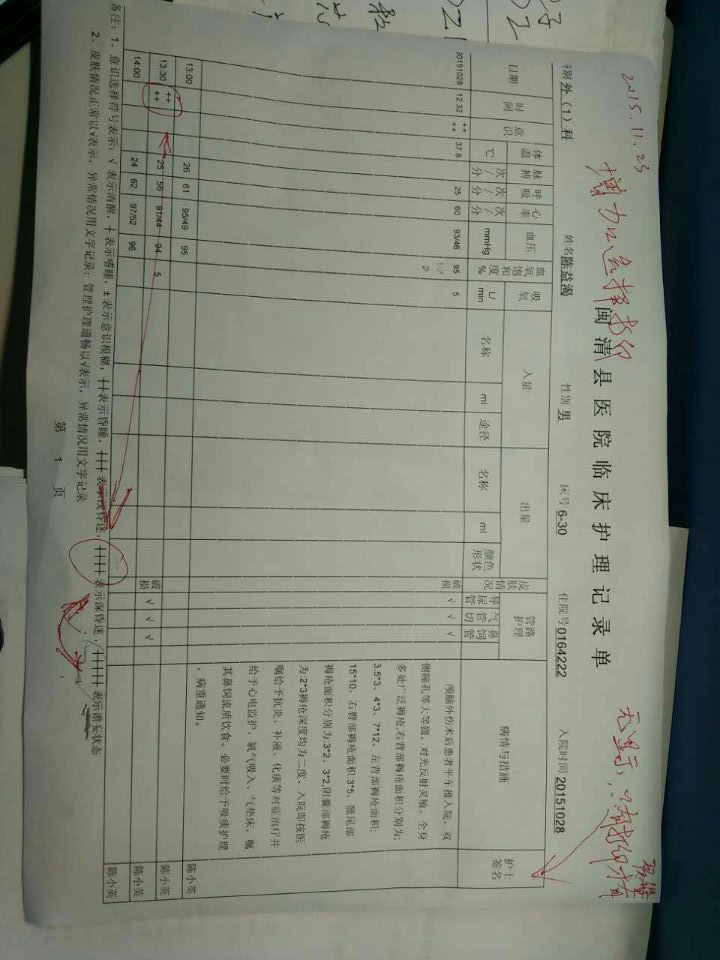 2015.11.23
闽清县医院临床护理记录单
科别 外（1）科 姓名 陈益渴 性别 男 床号 6-30 住院号 0164222 入院时间 20151028
日期 时间 意识 体温 ℃ 脉搏 次/分 呼吸 次/分 心率 次/分 血压 mmHg 血氧饱和度 % 吸氧 L/min 入量 名称 ml 途径 出量 名称 ml 颜色形状 皮肤情况 管路护理 导尿管 气管切 鼻饲管 病情与措施 护士签名
20151028 12:32 ++ ++ 37.8 25 60 93/46 95 5 破损 √ √ √
颅脑外伤术后患者平车推入院，双
侧瞳孔等大等圆，对光反射灵敏，全身
多处广泛褥疮:右背部褥疮面积分别为:
3.5*3、4*3、7*12、左背部褥疮面积:
15*10、右臀部褥疮面积:3*5、骶尾部
褥疮面积分别为:3*2、3*2,阴囊部褥疮
为:2*3褥疮深度均为二度，入院即按医
嘱给予抗炎、补液、化痰等对症治疗并
给予心电监护、氧气吸入、气垫床，嘱
其鼻饲流质饮食，必要时给予吸痰护理
，病重通知。
13:00 26 61 95/49 95 陈小英
13:30 ++ ++ 25 56 91/44 94 5 陈小英
14:00 24 62 97/52 96 破损 √ √ √ 陈小英
备注：1、意识选择符号表示：√ 表示清醒，+ 表示嗜睡，± 表示意识模糊，++表示昏睡，+++ 表示浅昏迷，++++ 表示深昏迷，+++++ 表示谵妄状态
2、皮肤情况正常以√表示，异常情况用文字记录；管理护理通畅以√表示，异常情况用文字记录
第 1 页